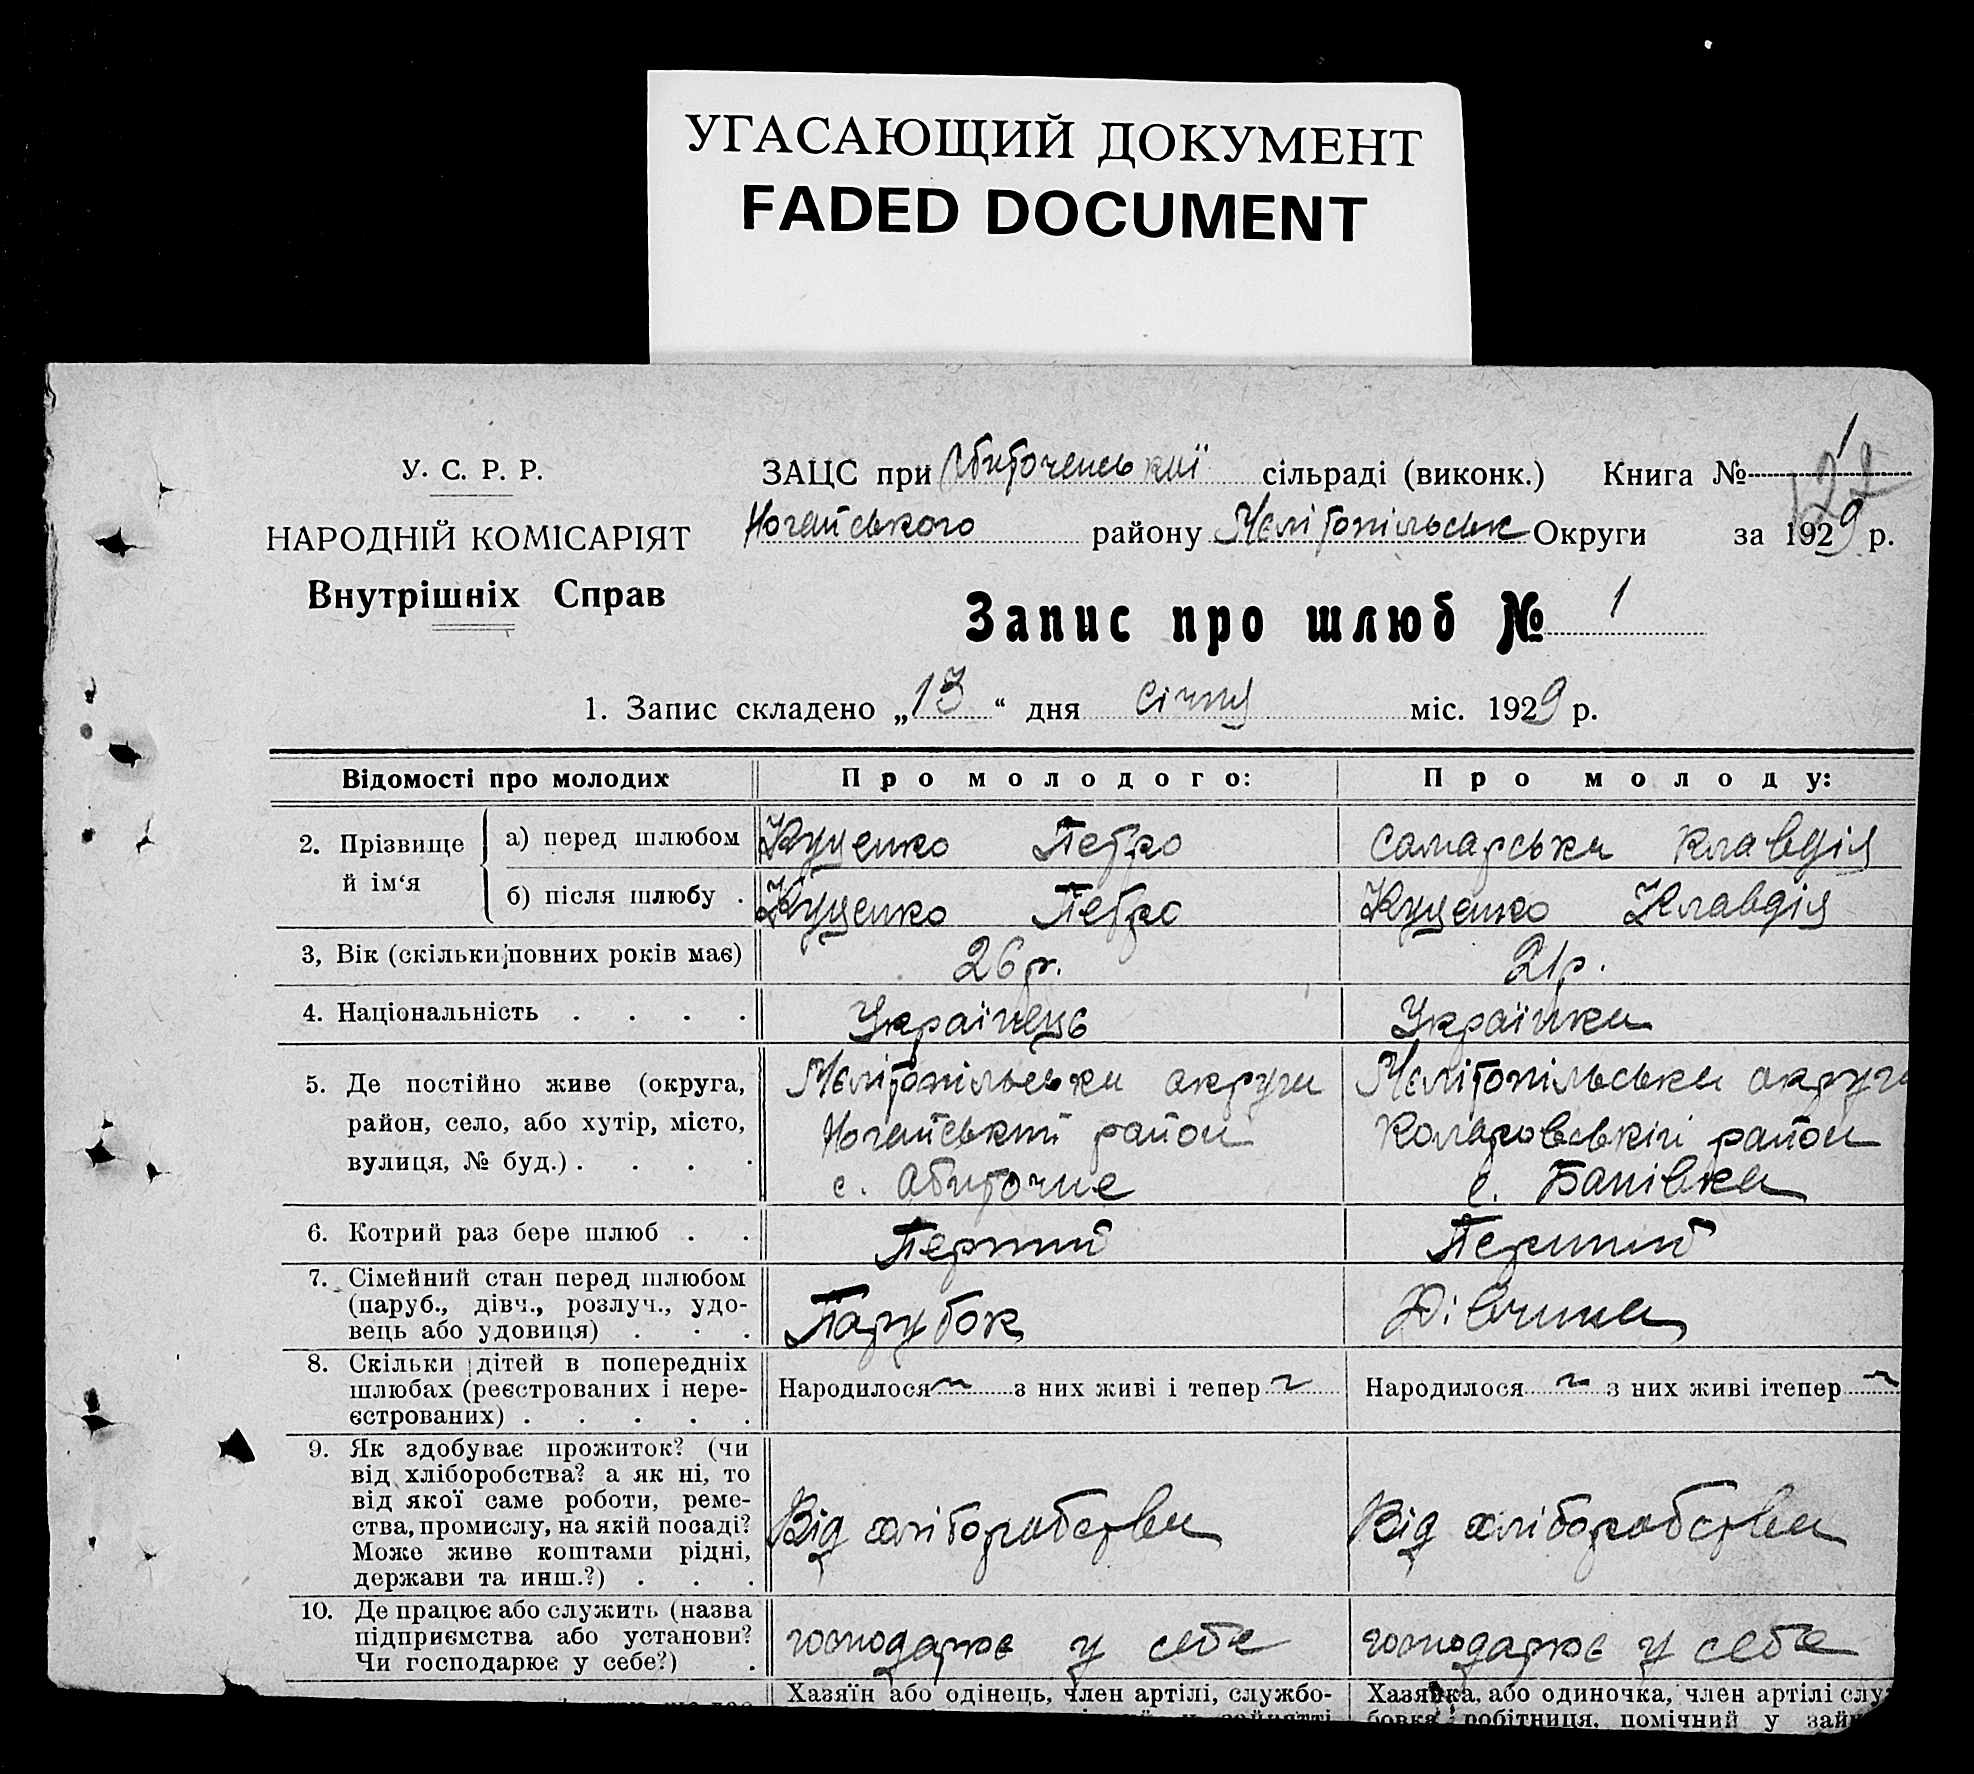 УГАСАЮЩИЙ ДОКУМЕНТ
FADED DOCUMENT
У. С. Р. Р.
НАРОДНІЙ КОМІСАРІЯТ
Внутрішніх Справ
ЗАЦС при Обиточенській сільраді (виконк.) Книга № 1
Ногайського району Мелітопільськ Округи за 1929 р.
Запис про шлюб № 1
1. Запис складено „13“ дня січня міс. 1929 р.
Відомості про молодих Про молодого: Про молоду:
2. Прізвище й ім‘я
а) перед шлюбом Куценко Петро Самарська Клавдія
б) після шлюбу . Куценко Петро Куценко Клавдія
3, Вік (скільки повних років має) 26 р. 21 р.
4. Національність . . . . Українець Українка
5. Де постійно живе (округа,
район, село, або хутір, місто,
вулиця, № буд.) . . . .
Мелітопільська округи
Ногайський район
с. Обиточне
Мелітопільська округи
Коларовський район
с. Банівка
6. Котрий раз бере шлюб . . Перший Перший
7. Сімейний стан перед шлюбом
(паруб., дівч., розлуч., удо-
вець або удовиця) . . .
Парубок Дівчина
8. Скільки дітей в попередніх
шлюбах (реєстрованих і нере-
єстрованих) . . . . .
Народилося з них живі і тепер Народилося з них живі ітепер
9. Як здобуває прожиток? (чи
від хліборобства? а як ні, то
від якої саме роботи, реме-
ства, промислу, на якій посаді?
Може живе коштами рідні,
держави та инш.?) . . .
Від хліборобства Від хліборобства
10. Де працює або служить (назва
підприємства або установи?
Чи господарює у себе?) .
господарює у себе господарює у себе
Хазяїн або одінець, член артілі, службо- Хазяйка, або одиночка, член артілі слу
бовка робітниця, помічний у зай